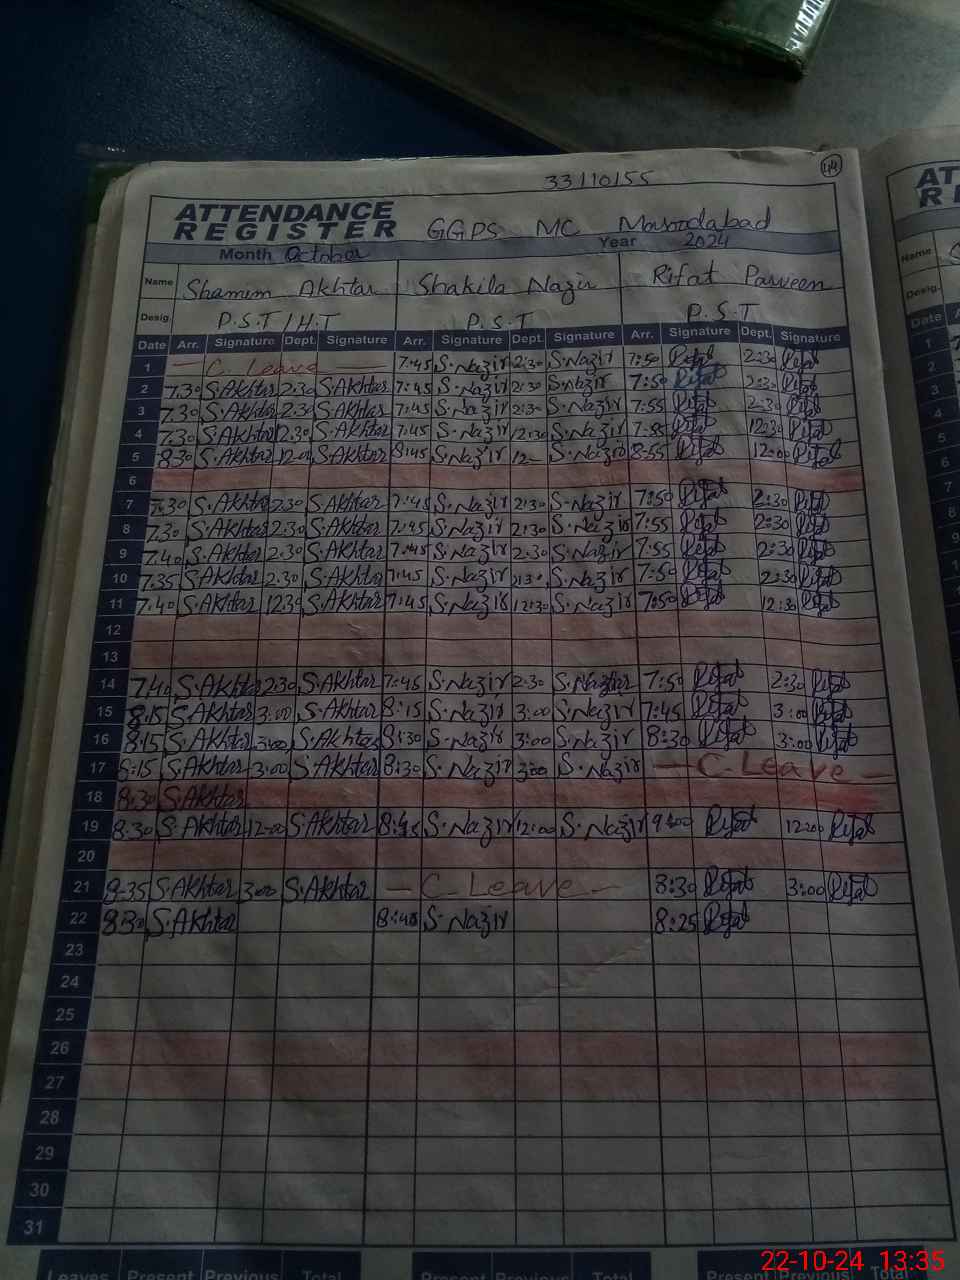 44
33110155
ATTENDANCE
REGISTER GGPS MC Murodabad
Month October Year 2024
Name Shamim Akhtar Shakila Nazir Rifat Parveen
Desig. P.S.T/H.T P.S.T P.S.T
Date Arr. Signature Dept. Signature Arr. Signature Dept. Signature Arr. Signature Dept. Signature
1 — C. Leave — 7:45 S.Nazir 2:30 S.Nazir 7:50 Rifat 2:30 Rifat
2 7.30 S.Akhtar 2.30 S.Akhtar 7:45 S.Nazir 2:30 S.Nazir 7:50 Rifat 2:30 Rifat
3 7.30 S.Akhtar 2.30 S.Akhtar 7:45 S.Nazir 2:30 S.Nazir 7:55 Rifat 2:30 Rifat
4 7.30 S.Akhtar 12.30 S.Akhtar 7:45 S.Nazir 12:30 S.Nazir 7:55 Rifat 12:30 Rifat
5 8.30 S.Akhtar 12.00 S.Akhtar 8:45 S.Nazir 12— S.Nazir 8:55 Rifat 12:00 Rifat
6
7 7.30 S.Akhtar 2.30 S.Akhtar 7:45 S.Nazir 2:30 S.Nazir 7:50 Rifat 2:30 Rifat
8 7.30 S.Akhtar 2.30 S.Akhtar 7:45 S.Nazir 2:30 S.Nazir 7:55 Rifat 2:30 Rifat
9 7.40 S.Akhtar 2.30 S.Akhtar 7:45 S.Nazir 2:30 S.Nazir 7:55 Rifat 2:30 Rifat
10 7.35 S.Akhtar 2.30 S.Akhtar 7:45 S.Nazir 2:30 S.Nazir 7:50 Rifat 2:30 Rifat
11 7.40 S.Akhtar 12.30 S.Akhtar 7:45 S.Nazir 12:30 S.Nazir 7:50 Rifat 12:30 Rifat
12
13
14 7.40 S.Akhtar 2.30 S.Akhtar 7:45 S.Nazir 2:30 S.Nazir 7:50 Rifat 2:30 Rifat
15 8:15 S.Akhtar 3:00 S.Akhtar 8:15 S.Nazir 3:00 S.Nazir 7:45 Rifat 3:00 Rifat
16 8:15 S.Akhtar 3:00 S.Akhtar 8:30 S.Nazir 3:00 S.Nazir 8:30 Rifat 3:00 Rifat
17 8:15 S.Akhtar 3:00 S.Akhtar 8:30 S.Nazir 3:00 S.Nazir — C. Leave —
18 8:30 S.Akhtar
19 8:30 S.Akhtar 12:00 S.Akhtar 8:45 S.Nazir 12:00 S.Nazir 9:00 Rifat 12:00 Rifat
20
21 8:35 S.Akhtar 3:00 S.Akhtar — C. Leave — 8:30 Rifat 3:00 Rifat
22 8:30 S.Akhtar 8:40 S.Nazir 8:25 Rifat
23
24
25
26
27
28
29
30
31
Leaves Present Previous Total Present Previous Total Present Previous Total
AT
RE
Name
Desig.
Date
1
2
3
4
5
6
7
8
9
22-10-24 13:35